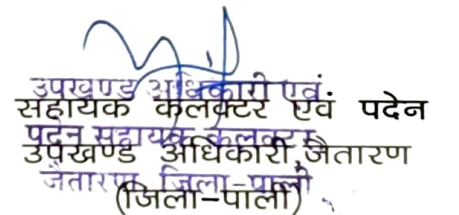 उपखण्ड अधिकारी एवं
सहायक कलक्टर एवं पदेन
पदेन सहायक कलक्टर
उपखण्ड अधिकारी, जैतारण
जैतारण जिला-पाली
(जिला-पाली)